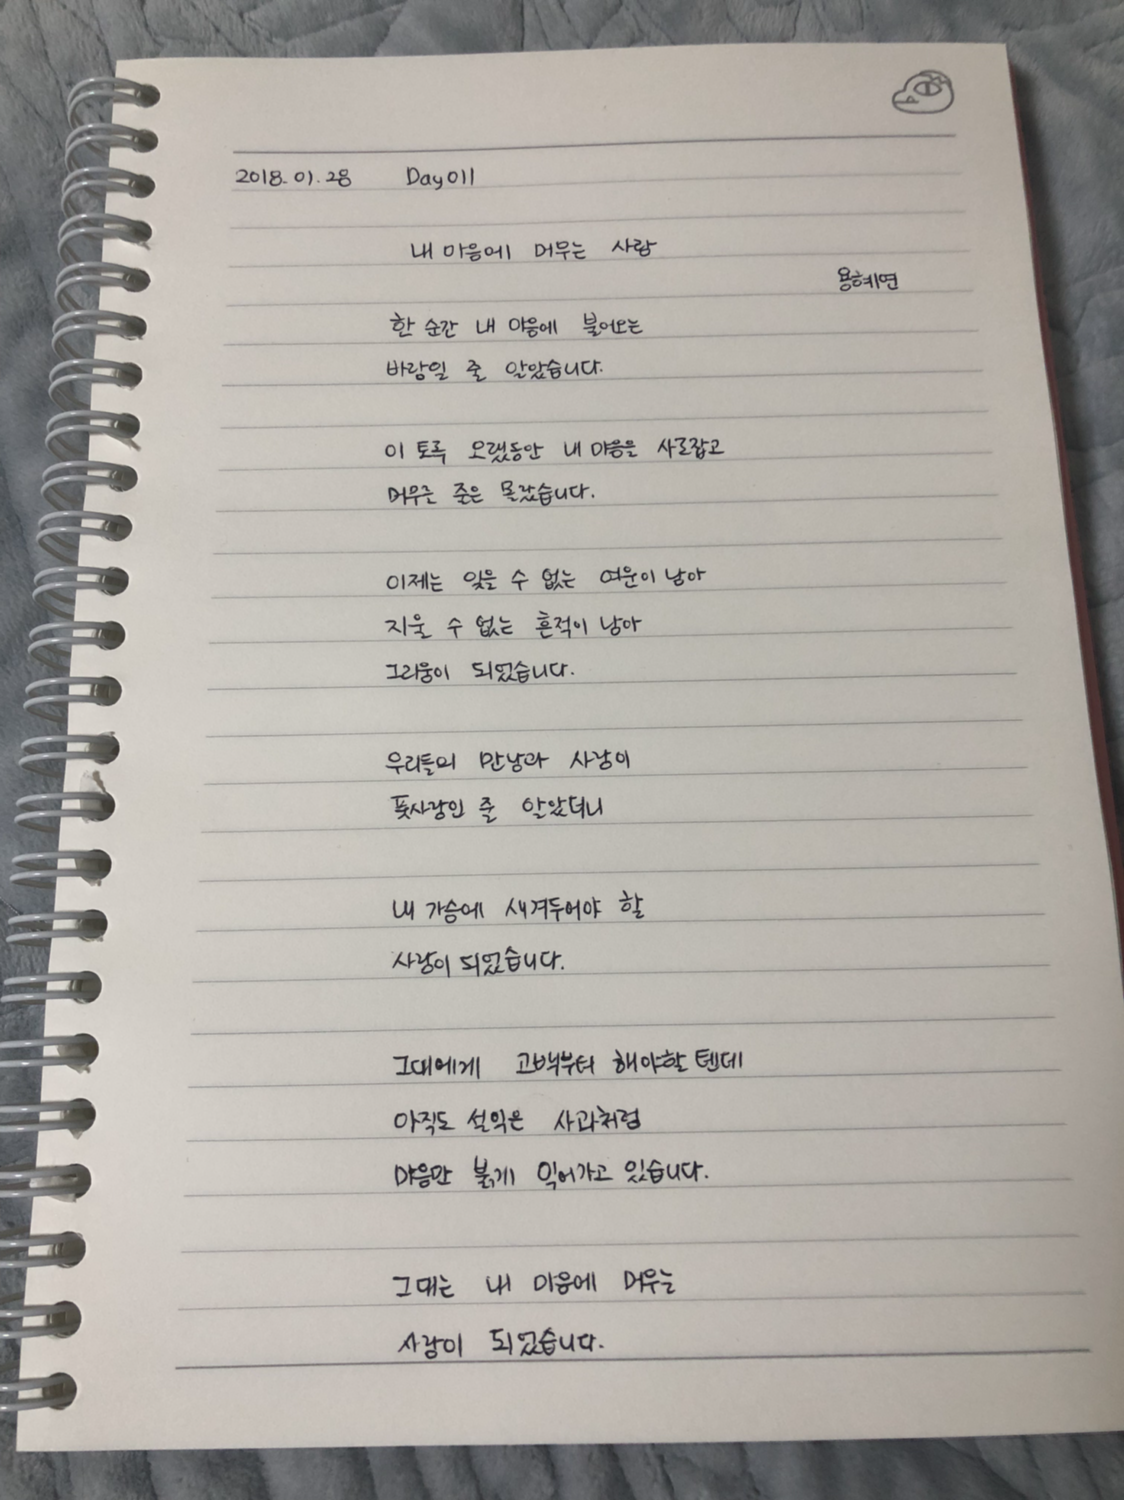 2018.01.28 Day011
내 마음에 머무는 사람
용혜연
한 순간 내 마음에 불어오는
바람일 줄 알았습니다.
이 토록 오랫동안 내 마음을 사로잡고
머무른 줄은 몰랐습니다.
이제는 잊을 수 없는 여운이 남아
지울 수 없는 흔적이 남아
그리움이 되었습니다.
우리들의 만남과 사랑이
풋사랑인 줄 알았더니
내 가슴에 새겨두어야 할
사랑이 되었습니다.
그대에게 고백부터 해야할 텐데
아직도 설익은 사과처럼
마음만 붉게 익어가고 있습니다.
그대는 내 마음에 머무는
사랑이 되었습니다.